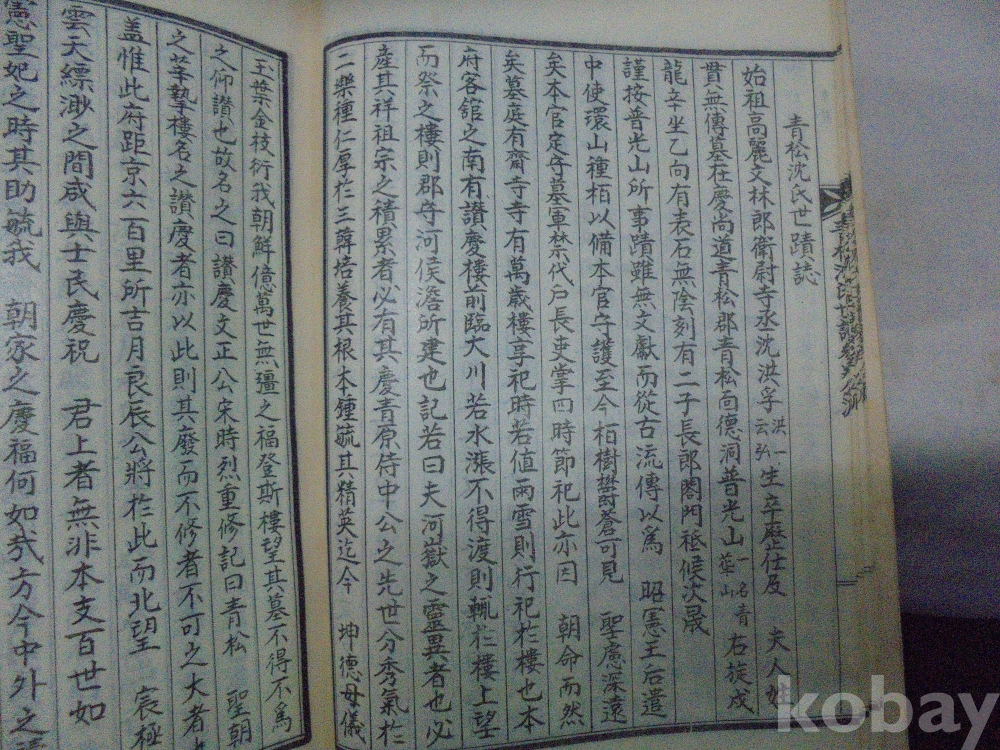 青松沈氏世蹟誌
始祖高麗文林郎衛尉寺丞沈洪孚 洪一云弘 生卒歷任及 夫人姓
貫無傳墓在慶尚道青松郡青松面德洞普光山 一名青葍山 右旋戌
龍辛坐乙向有表石無陰刻有二子長郎閤門祗候次晟
謹按普光山所事蹟雖無文獻而從古流傳以爲 昭憲王后遣
中使環山種栢以備本官守護至今栢樹欝蒼可見 聖慮深遠
矣本官定守墓軍禁代戶長吏掌四時節祀此亦因 朝命而然
矣墓庭有齋寺寺有萬歲樓享祀時若値雨雪則行祀於樓也本
府客舘之南有讚慶樓前臨大川若水漲不得渡則輒於樓上望
而祭之樓則郡守河侯澹所建也記若曰夫河嶽之靈異者也必
産其祥祖宗之積累者必有其慶青原侍中公之先世分秀氣於
二樂種仁厚於三韓培養其根本鍾毓其精英迄今 坤德母儀
玉葉金枝衍我朝鮮億萬世無疆之福登斯樓望其墓不得不爲
之仰讚也故名之曰讚慶文正公宋時烈重修記曰青松 聖朝
之莘摯樓名之讚慶者亦以此則其廢而不修者不可之大者
盖惟此府距京六百里所吉月良辰公將於此而北望 宸極
雲天縹渺之間咸與士民慶祝 君上者無非本支百世如
憲聖妃之時其助毓我 朝家之慶福何如哉方今中外之
kobay